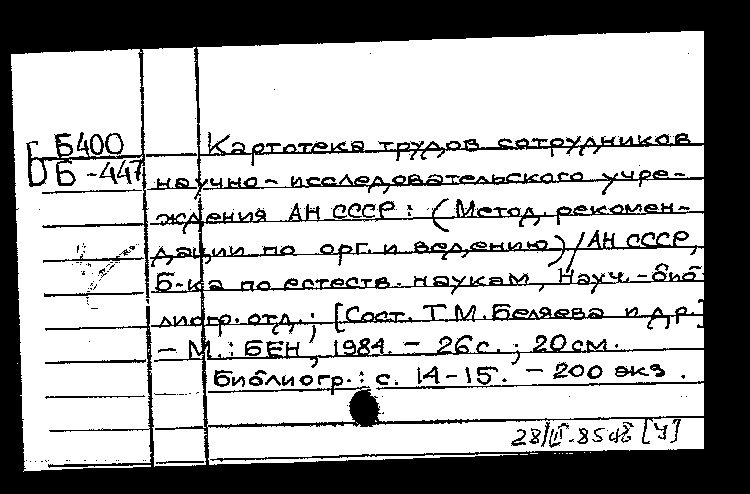 Б400 Картотека трудов сотрудников
Б-447 научно-исследовательского учре-
ждения АН СССР: (Метод. рекомен-
дации по орг. и ведению) / АН СССР,
Б-ка по естеств. наукам, Науч.-биб-
лиогр. отд.; [Сост. Т.М. Беляева и др.]
- М.: БЕН, 1984. - 26 с.; 20 см.
Библиогр.: с. 14-15. - 200 экз.
[У]